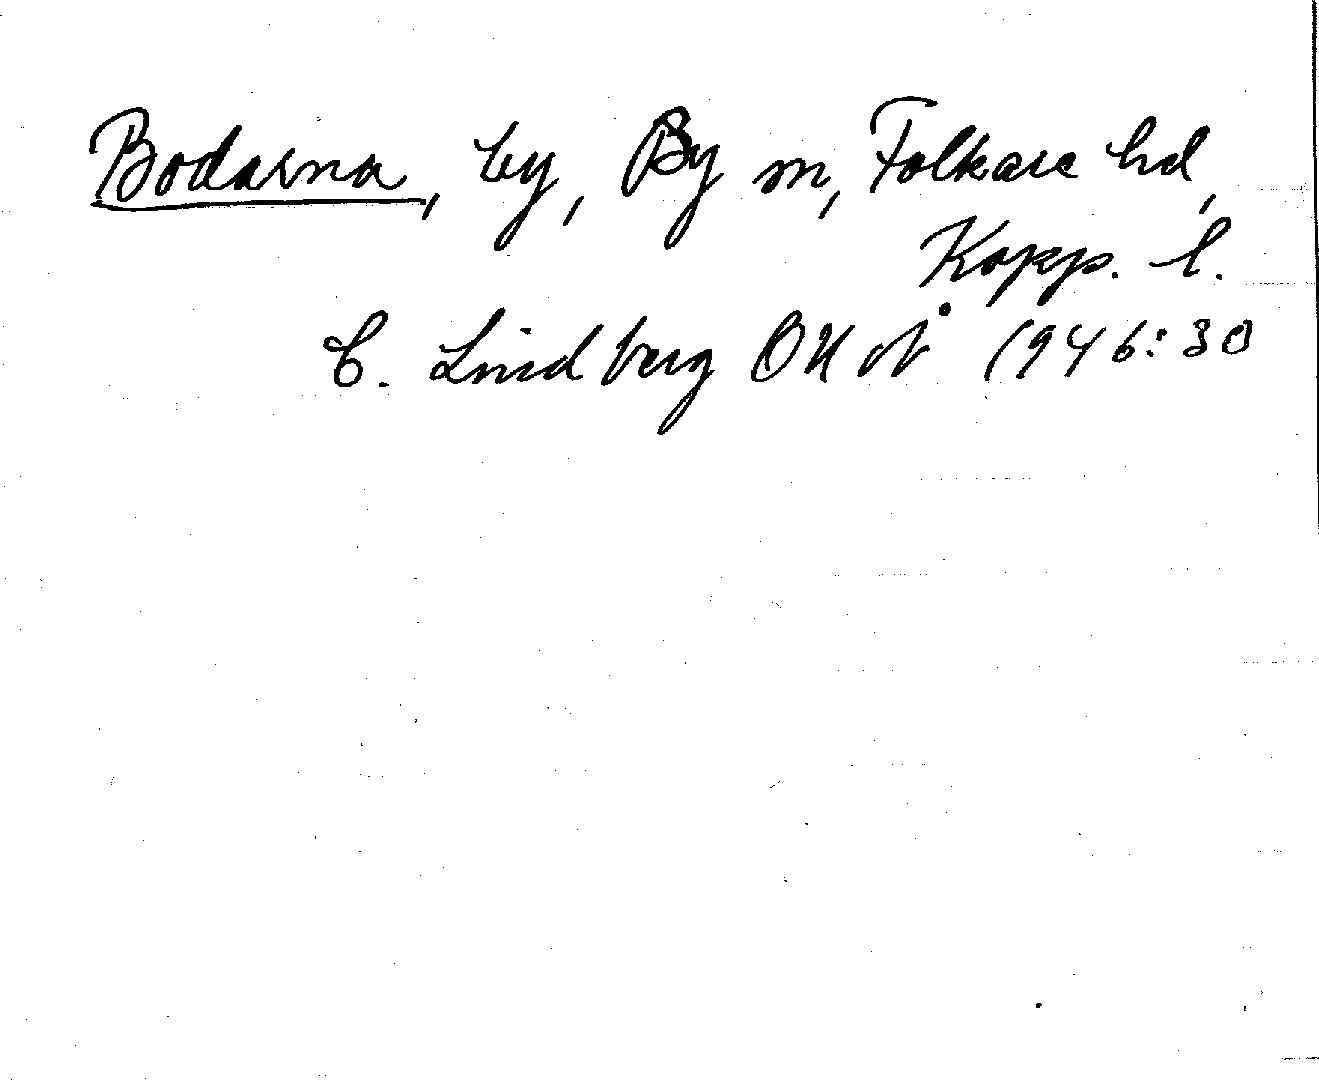 Bodarna, by, By sn, Folkare hd,
Kopp. l.
C. Lindberg OUÅ 1946:30